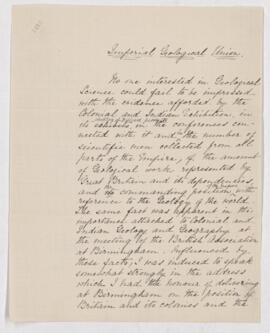 Imperial Geological Union.
No one interested in Geological
Science could fail to be impressed
with the evidence afforded by the
Colonial and Indian Exhibition, in
its exhibits in the conferences con-
nected with it and the number of
scientific men collected from all
parts of the Empire, of the amount
of Geological work represented by
Great Britain and its dependencies
and commanding position with
reference to the Geology of the world.
The same fact was apparent in the
importance attached to Colonial and
Indian Geology and Geography at
the meeting by the British Association
at Birmingham. Influenced by
these facts, I was induced to speak
somewhat strongly in the address
which I had the honour of delivering
at Birmingham on the position of
Britain and its colonies and the